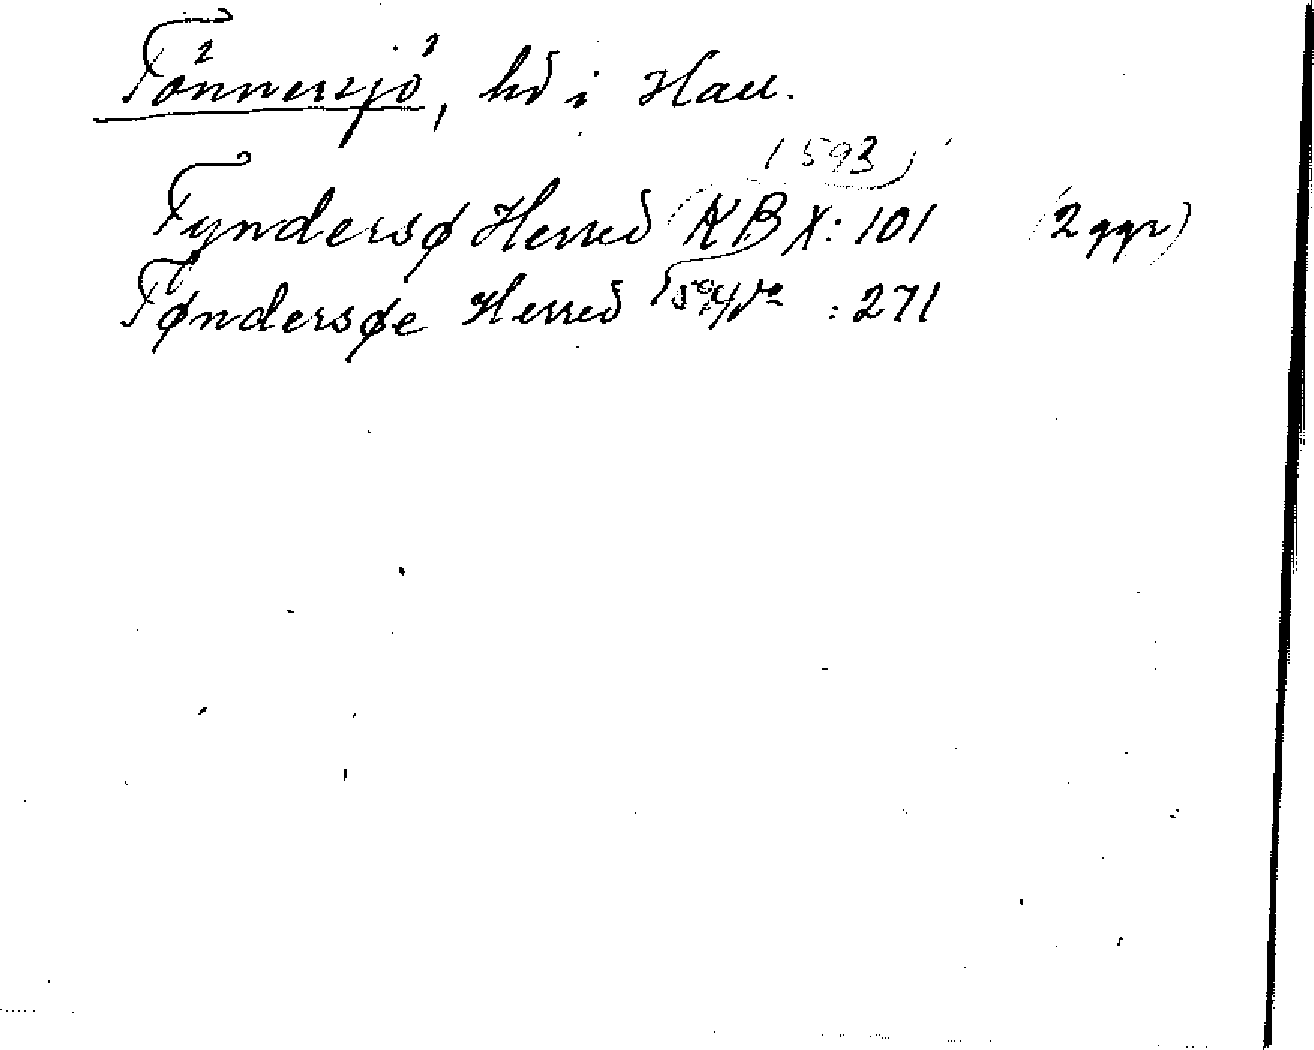 Tönnersjö, hd i Hall.
1593
Tyndersø Herred KB X: 101 (2 ggr)
Tøndersøe Herred 1594 : 271